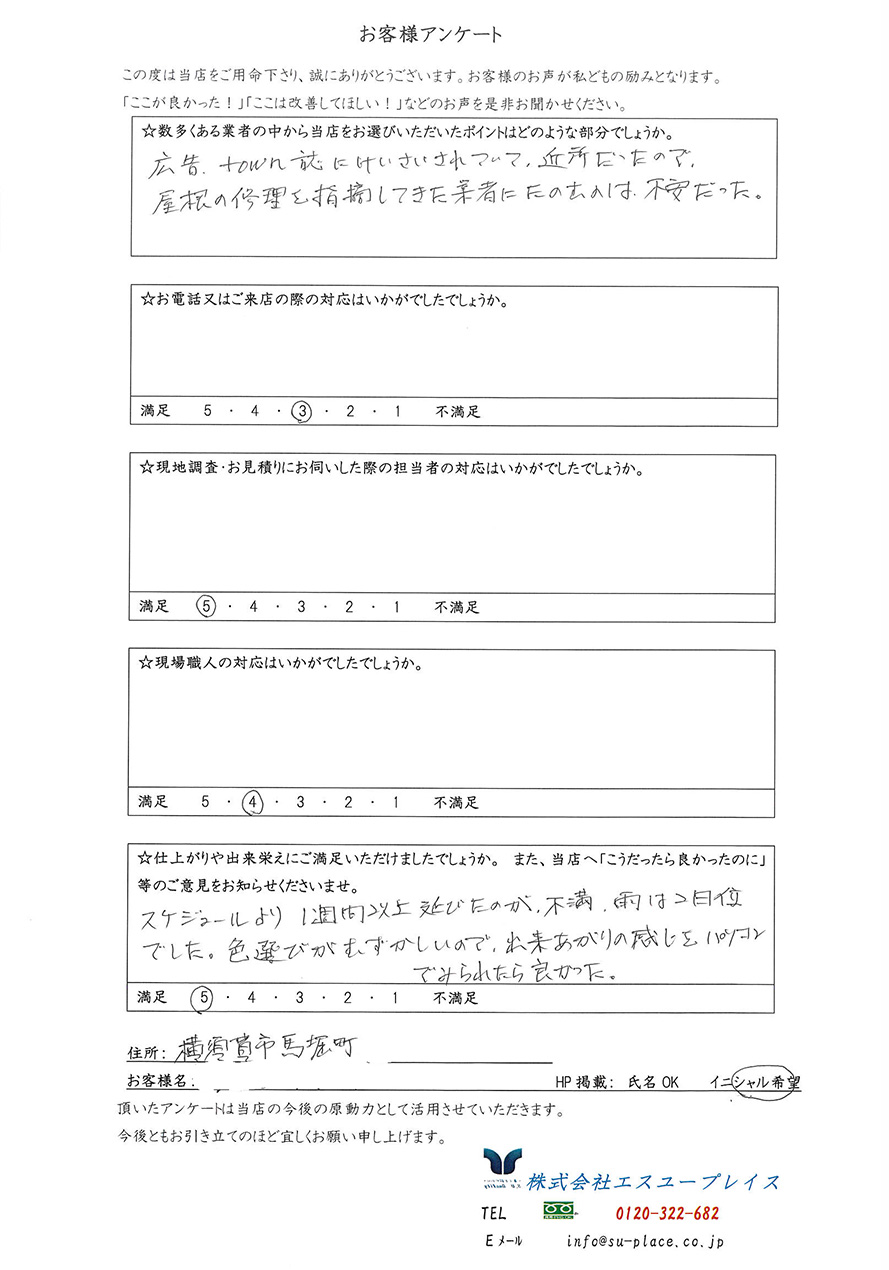 お客様アンケート
この度は当店をご用命下さり、誠にありがとうございます。お客様のお声が私どもの励みとなります。
「ここが良かった！」「ここは改善してほしい！」などのお声を是非お聞かせください。
☆数多くある業者の中から当店をお選びいただいたポイントはどのような部分でしょうか。
広告、town誌にけいさいされていて、近所だったので、
屋根の修理を指摘してきた業者にたのむのは、不安だった。
☆お電話又はご来店の際の対応はいかがでしたでしょうか。
満足 5 ・ 4 ・ 3 ・ 2 ・ 1 不満足
☆現地調査・お見積りにお伺いした際の担当者の対応はいかがでしたでしょうか。
満足 5 ・ 4 ・ 3 ・ 2 ・ 1 不満足
☆現場職人の対応はいかがでしたでしょうか。
満足 5 ・ 4 ・ 3 ・ 2 ・ 1 不満足
☆仕上がりや出来栄えにご満足いただけましたでしょうか。 また、当店へ「こうだったら良かったのに」
等のご意見をお知らせくださいませ。
スケジュールより1週間以上延びたのが、不満、雨は2日位
でした。色選びがむずかしいので、出来あがりの感じをパソコン
でみられたら良かった。
満足 5 ・ 4 ・ 3 ・ 2 ・ 1 不満足
住所: 横須賀市馬堀町
お客様名: HP掲載: 氏名OK イニシャル希望
頂いたアンケートは当店の今後の原動力として活用させていただきます。
今後ともお引き立てのほど宜しくお願い申し上げます。
株式会社エスユープレイス
TEL 0120-322-682
Eメール info@su-place.co.jp